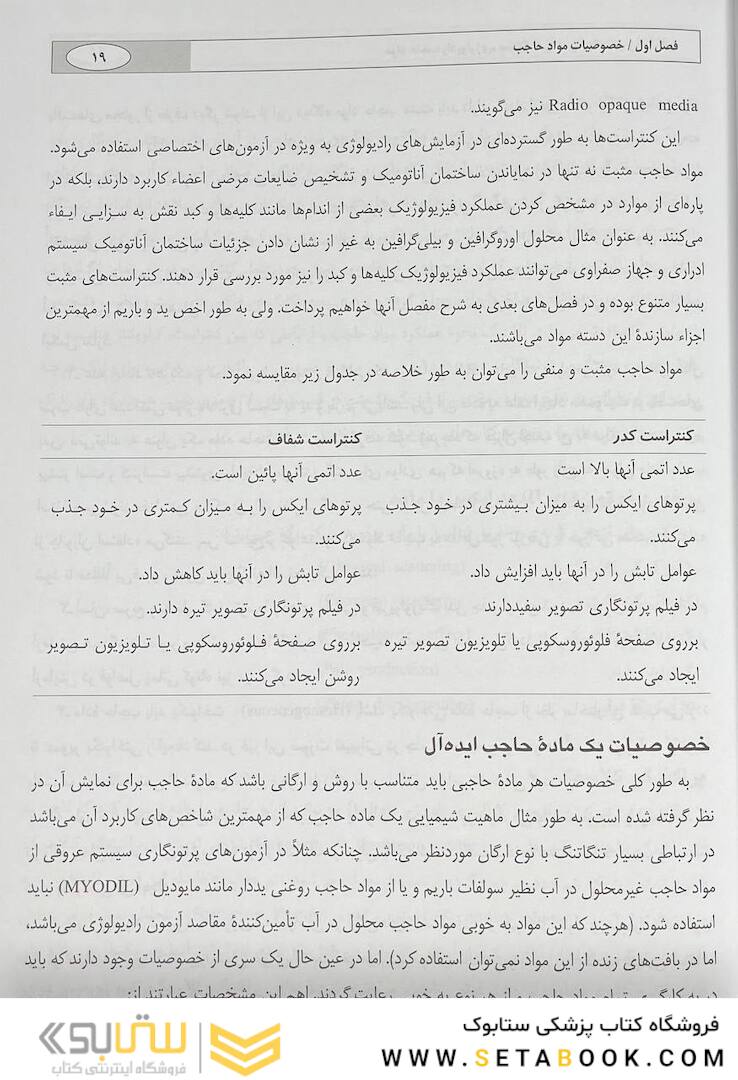 فصل اول / خصوصیات مواد حاجب
۱۹
Radio opaque media نیز می‌گویند.
این کنتراست‌ها به طور گسترده‌ای در آزمایش‌های رادیولوژی به ویژه در آزمون‌های اختصاصی استفاده می‌شود.
مواد حاجب مثبت نه تنها در نمایاندن ساختمان آناتومیک و تشخیص ضایعات مرضی اعضاء کاربرد دارند، بلکه در
پاره‌ای از موارد در مشخص کردن عملکرد فیزیولوژیک بعضی از اندام‌ها مانند کلیه‌ها و کبد نقش به سزایی ایفاء
می‌کنند. به عنوان مثال محلول اوروگرافین و بیلی‌گرافین به غیر از نشان دادن جزئیات ساختمان آناتومیک سیستم
ادراری و جهاز صفراوی می‌توانند عملکرد فیزیولوژیک کلیه‌ها و کبد را نیز مورد بررسی قرار دهند. کنتراست‌های مثبت
بسیار متنوع بوده و در فصل‌های بعدی به شرح مفصل آنها خواهیم پرداخت. ولی به طور اخص ید و باریم از مهمترین
اجزاء سازندهٔ این دسته مواد می‌باشند.
مواد حاجب مثبت و منفی را می‌توان به طور خلاصه در جدول زیر مقایسه نمود.
کنتراست کدر
عدد اتمی آنها بالا است
پرتوهای ایکس را به میزان بیشتری در خود جذب
می‌کنند.
عوامل تابش را در آنها باید افزایش داد.
در فیلم پرتونگاری تصویر سفیددارند
برروی صفحهٔ فلوئوروسکوپی یا تلویزیون تصویر تیره
ایجاد می‌کنند.
کنتراست شفاف
عدد اتمی آنها پائین است.
پرتوهای ایکس را به میزان کمتری در خود جذب
می‌کنند.
عوامل تابش را در آنها باید کاهش داد.
در فیلم پرتونگاری تصویر تیره دارند.
برروی صفحهٔ فلوئوروسکوپی یا تلویزیون تصویر
روشن ایجاد می‌کنند.
خصوصیات یک مادهٔ حاجب ایده‌آل
به طور کلی خصوصیات هر مادهٔ حاجبی باید متناسب با روش و ارگانی باشد که مادهٔ حاجب برای نمایش آن در
نظر گرفته شده است. به طور مثال ماهیت شیمیایی یک ماده حاجب که از مهمترین شاخص‌های کاربرد آن می‌باشد
در ارتباطی بسیار تنگاتنگ با نوع ارگان موردنظر می‌باشد. چنانکه مثلاً در آزمون‌های پرتونگاری سیستم عروقی از
مواد حاجب غیرمحلول در آب نظیر سولفات باریم و یا از مواد حاجب روغنی یددار مانند مایودیل (MYODIL) نباید
استفاده شود. (هرچند که این مواد به خوبی مواد حاجب محلول در آب تأمین‌کنندهٔ مقاصد آزمون رادیولوژی می‌باشد،
اما در بافت‌های زنده از این مواد نمی‌توان استفاده کرد). اما در عین حال یک سری از خصوصیات وجود دارند که باید
فروشگاه کتاب پزشکی ستابوک
WWW.SETABOOK.COM
ستابوک
فروشگاه اینترنتی کتاب